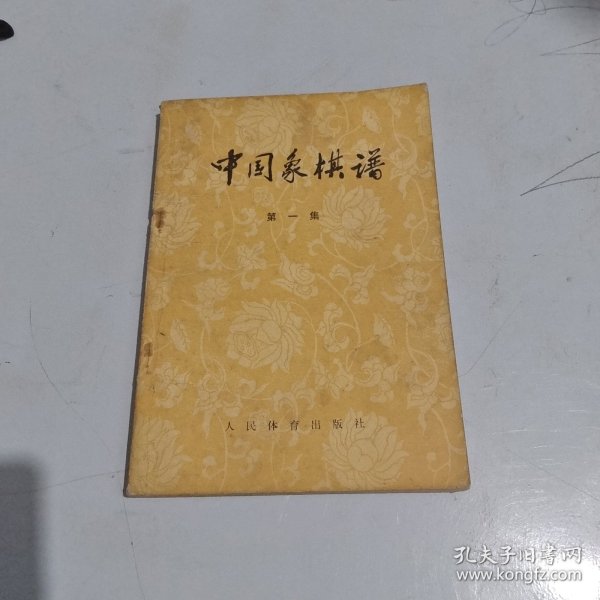 中国象棋谱
第一集
人民体育出版社
孔夫子旧书网
www.kongfz.com